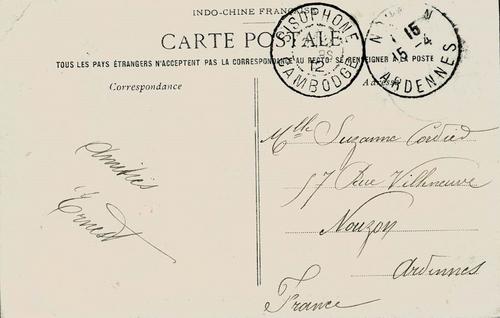 INDO-CHINE FRANÇAISE
CARTE POSTALE
TOUS LES PAYS ÉTRANGERS N'ACCEPTENT PAS LA CORRESPONDANCE AU RECTO. SE RENSEIGNER A LA POSTE
SISOPHONE
12
CAMBODGE
15
15 -4
ARDENNES
Correspondance
Adresse
Amitiés
Ernest
Mlle Suzanne Cordier
57 Rue Villeneuve
Nouzon
Ardennes
France